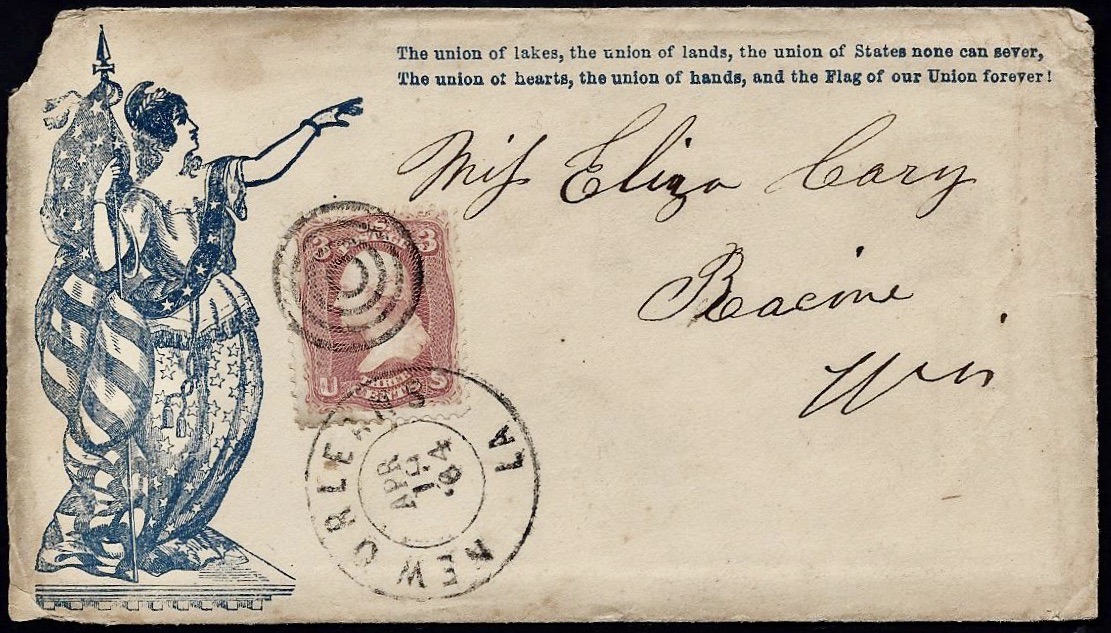 The union of lakes, the union of lands, the union of States none can sever,
The union of hearts, the union of hands, and the Flag of our Union forever!
Miss Eliza Cary
Racine
Wis
3 3
U S
NEW ORLEANS LA
APR
'64